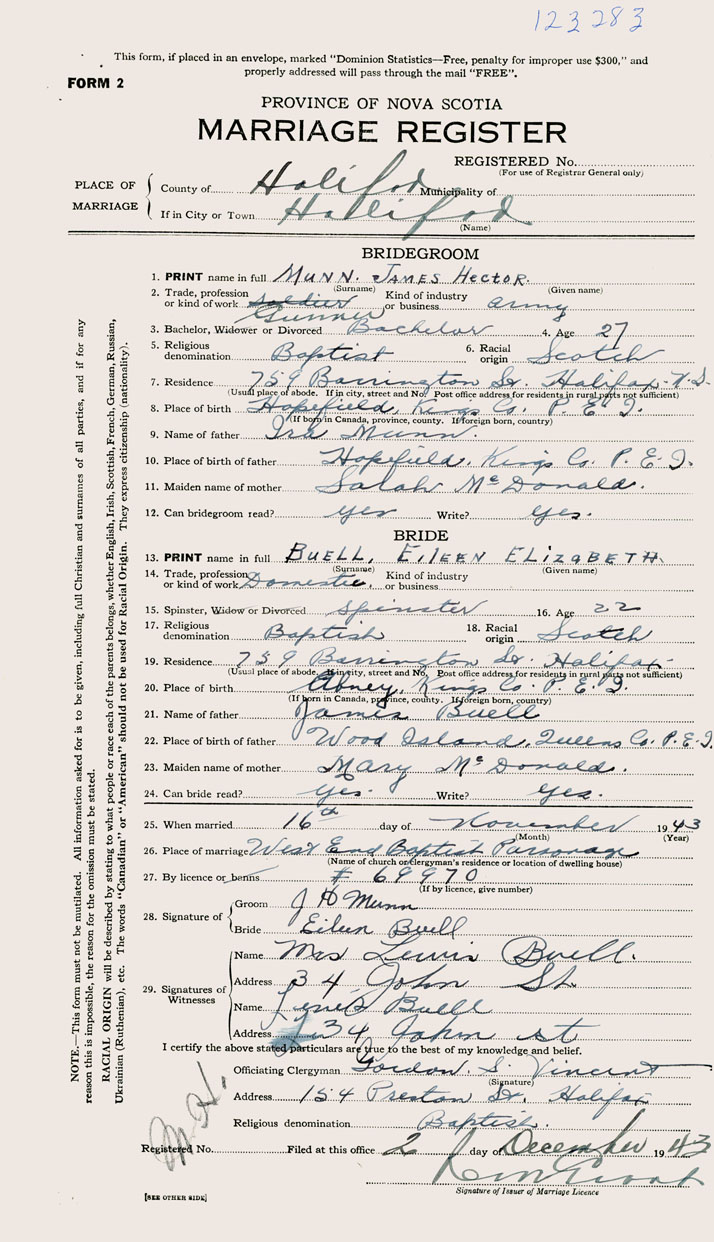 123283
This form, if placed in an envelope, marked "Dominion Statistics—Free, penalty for improper use $300," and
properly addressed will pass through the mail "FREE".
FORM 2
PROVINCE OF NOVA SCOTIA
MARRIAGE REGISTER
REGISTERED No.
(For use of Registrar General only)
PLACE OF MARRIAGE
County of Halifax Municipality of
If in City or Town Halifax
(Name)
BRIDEGROOM
1. PRINT name in full MUNN. JAMES HECTOR.
(Surname) (Given name)
2. Trade, profession or kind of work soldier Gunner Kind of industry or business army
3. Bachelor, Widower or Divorced Bachelor 4. Age 27
5. Religious denomination Baptist 6. Racial origin Scotch
7. Residence 759 Barrington St. Halifax. N.S.
(Usual place of abode. If in city, street and No. Post office address for residents in rural parts not sufficient)
8. Place of birth Hopefield, Kings Co. P. E. I.
(If born in Canada, province, county. If foreign born, country)
9. Name of father Ira Munn.
10. Place of birth of father Hopefield, Kings Co. P. E. I.
11. Maiden name of mother Sarah McDonald.
12. Can bridegroom read? yes Write? yes.
BRIDE
13. PRINT name in full BUELL, EILEEN ELIZABETH
(Surname) (Given name)
14. Trade, profession or kind of work Domestic, Kind of industry or business
15. Spinster, Widow or Divorced Spinster 16. Age 22
17. Religious denomination Baptist 18. Racial origin Scotch
19. Residence 759 Barrington St. Halifax
(Usual place of abode. If in city, street and No. Post office address for residents in rural parts not sufficient)
20. Place of birth Abney, Kings Co. P. E. I.
(If born in Canada, province, county. If foreign born, country)
21. Name of father James Buell
22. Place of birth of father Wood Island, Queens Co. P.E.I.
23. Maiden name of mother Mary McDonald.
24. Can bride read? yes. Write? yes.
25. When married 16th day of November 1943
(Month) (Year)
26. Place of marriage West End Baptist Parsonage
(Name of church or clergyman's residence or location of dwelling house)
27. By licence or banns # 69970
(If by licence, give number)
28. Signature of
Groom J H Munn
Bride Eileen Buell
29. Signatures of Witnesses
Name Mrs Lewis Buell.
Address 34 John St.
Name Buell
Address 34 John st
I certify the above stated particulars are true to the best of my knowledge and belief.
Officiating Clergyman Gordon S. Vincent
(Signature)
Address 154 Preston St. Halifax
Religious denomination Baptist.
Registered No. Filed at this office 2 day of December 1943
Signature of Issuer of Marriage Licence
[SEE OTHER SIDE]
NOTE.—This form must not be mutilated. All information asked for is to be given, including full Christian and surnames of all parties, and if for any
reason this is impossible, the reason for the omission must be stated.
RACIAL ORIGIN will be described by stating to what people or race each of the parents belongs, whether English, Irish, Scottish, French, German, Russian,
Ukrainian (Ruthenian), etc. The words "Canadian" or "American" should not be used for Racial Origin. They express citizenship (nationality).